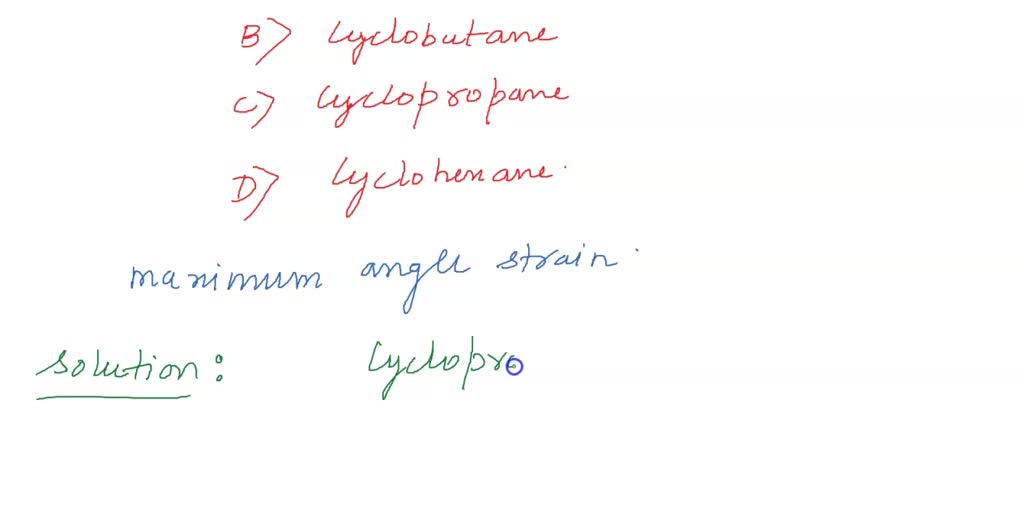 B) Cyclobutane
C) Cyclopropane
D) Cyclohexane.
maximum angle strain.
Solution: Cyclopro